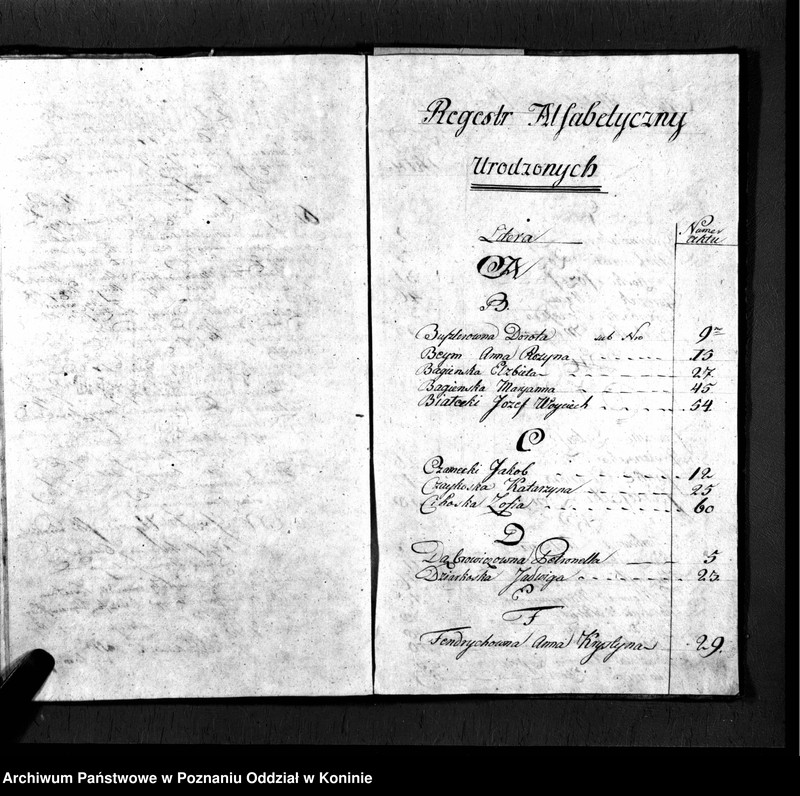 Regestr Alfabetyczny
Urodzonych
Litera
Numer
aktu
A
B.
Buszlerowna Dorota sub Nro 9
Beym Anna Rozyna 15
Bagienska Elzbieta 27
Bagienska Maryanna 45
Białecki Jozef Woyciech 54.
C
Czarnecki Jakob 12
Czaykoska Katarzyna 25
Cichoska Zofia 60
D
Dąbrowiczowna Petronella 5
Dziarkoska Jadwiga 23.
E
F
Fendrychowna Anna Krystyna 29.
Archiwum Państwowe w Poznaniu Oddział w Koninie